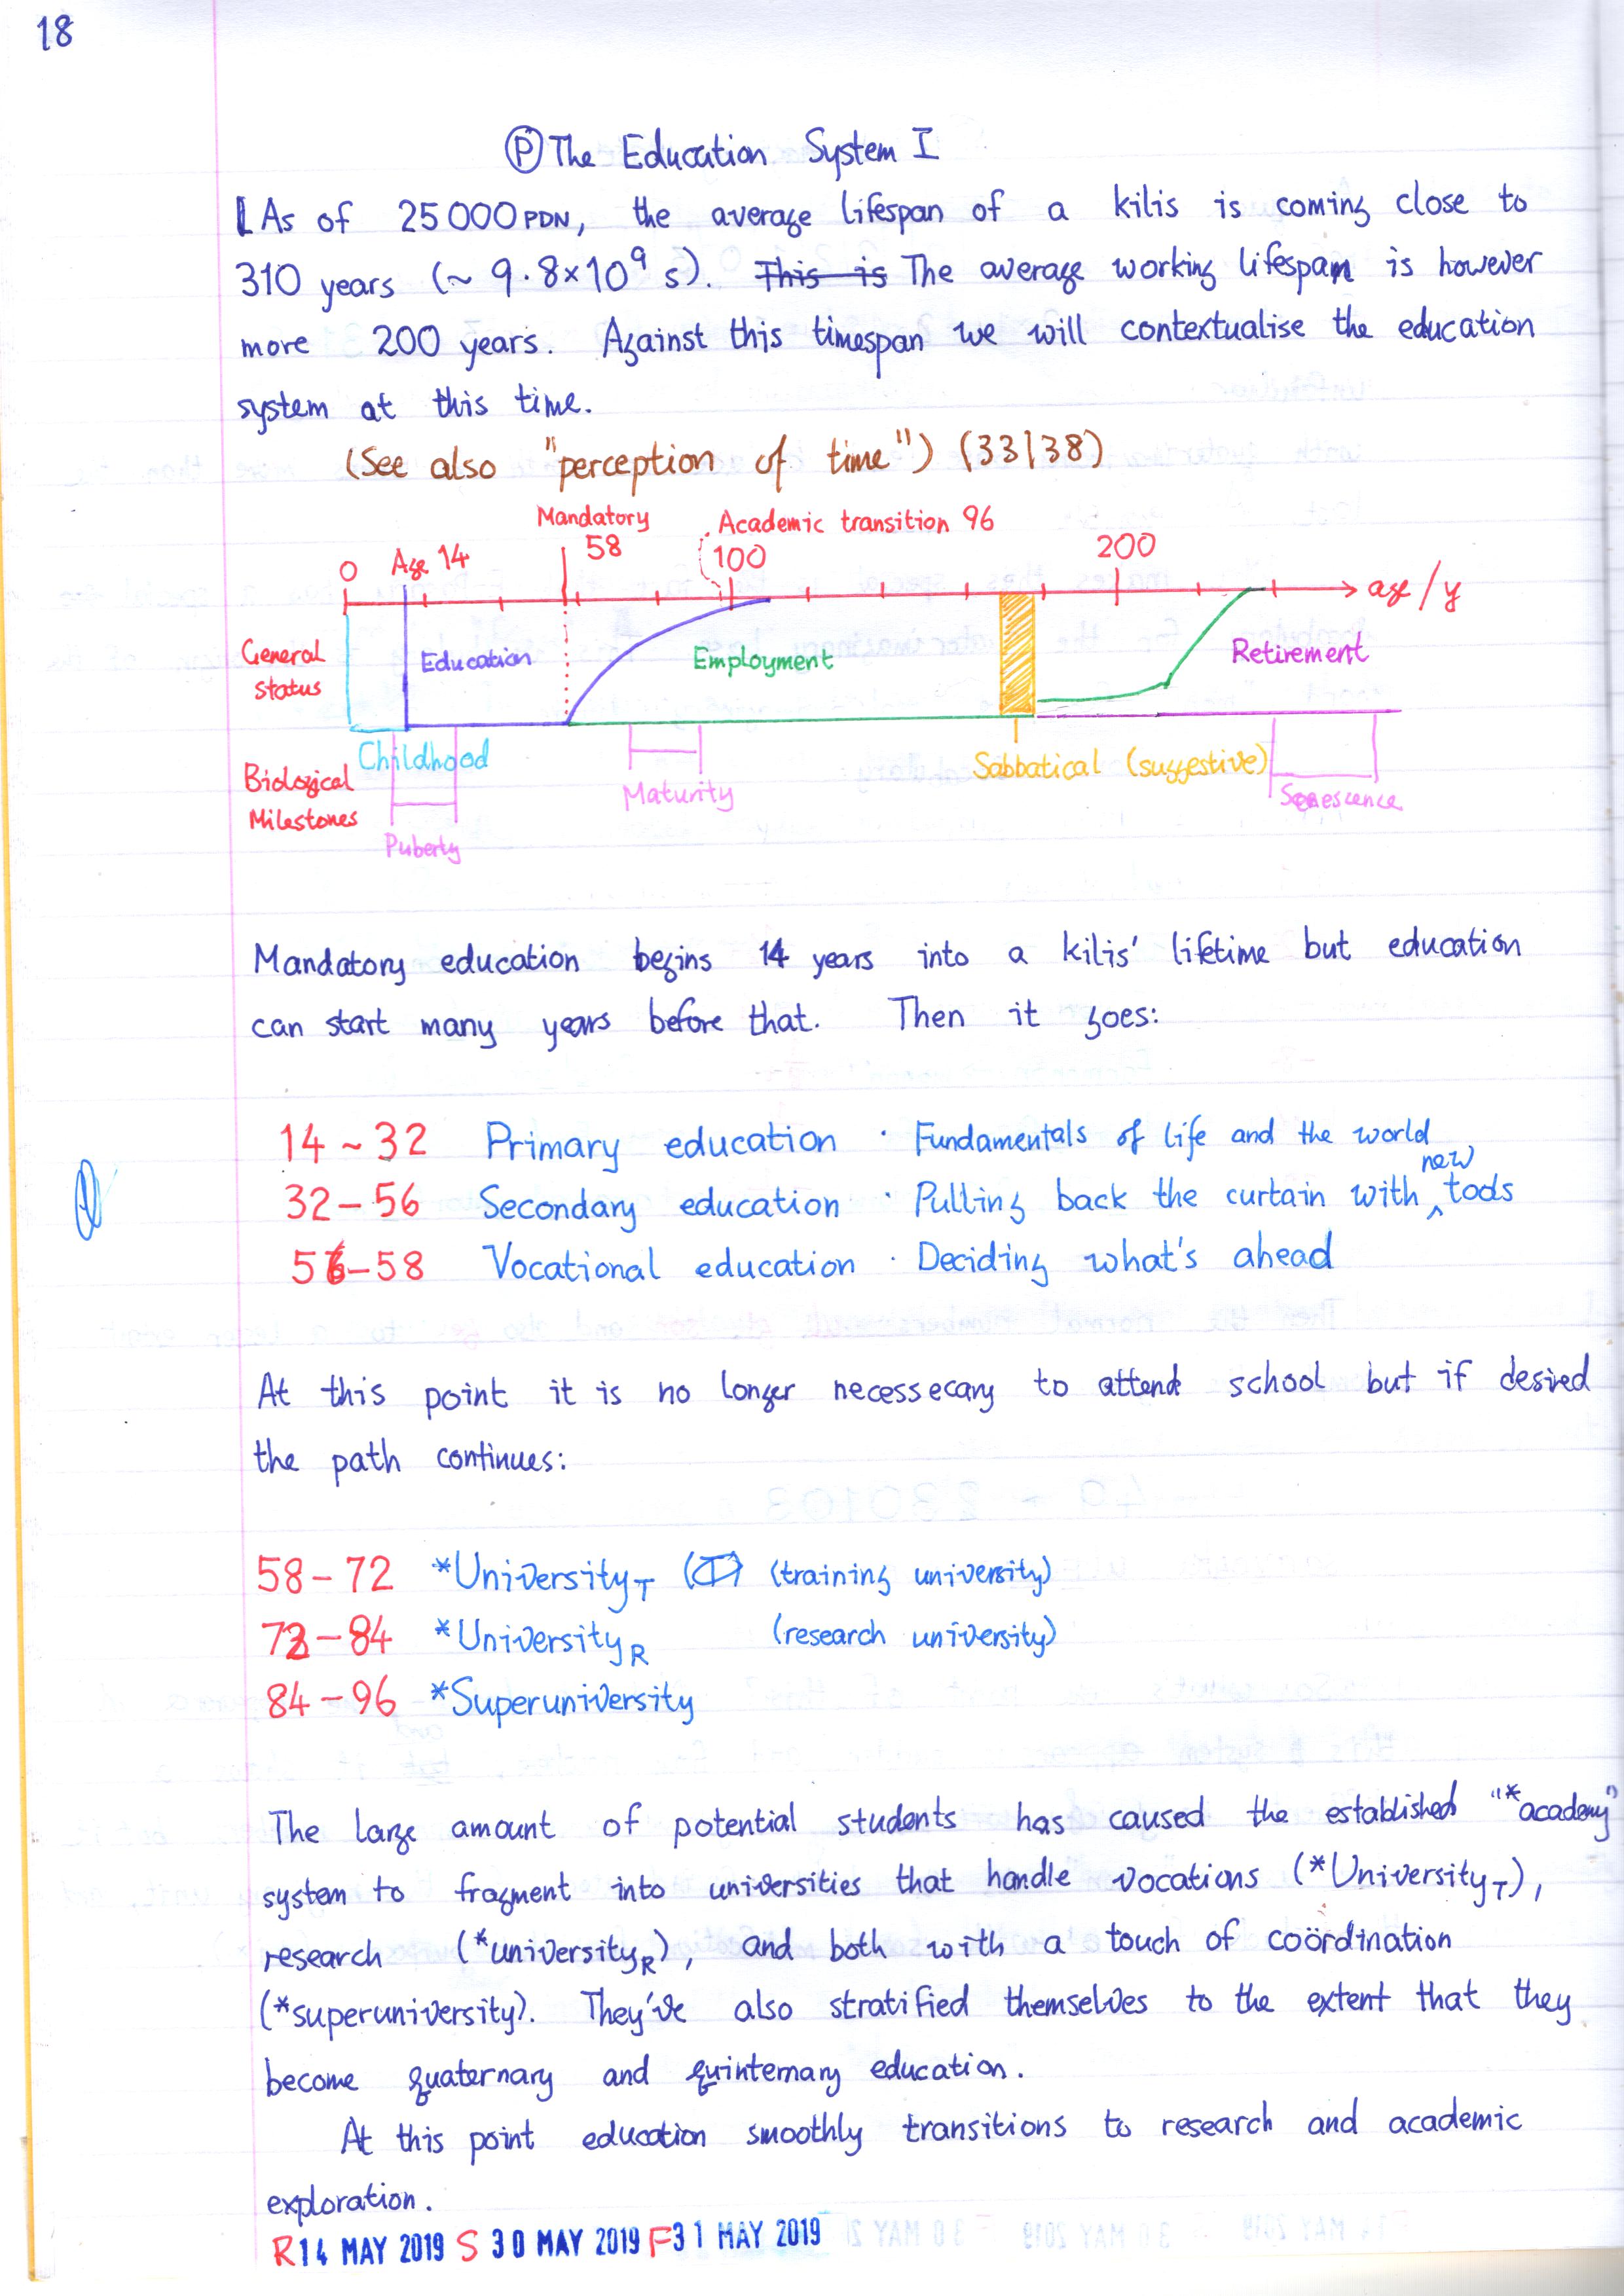 18
Ⓟ The Education System I
As of 25000 PDN, the average lifespan of a kilis is coming close to
310 years (~ 9.8×10⁹ s). This is The average working lifespan is however
more 200 years. Against this timespan we will contextualise the education
system at this time.
(See also "perception of time") (33|38)
Mandatory Academic transition 96
0 Age 14 58 100 200
age/y
General
status
Education Employment Retirement
Childhood Sabbatical (suggestive)
Biological
Milestones
Maturity Senescence
Puberty
Mandatory education begins 14 years into a kilis' lifetime but education
can start many years before that. Then it goes:
14 ~ 32 Primary education · Fundamentals of life and the world
32 – 56 Secondary education · Pulling back the curtain with new tools
56 – 58 Vocational education · Deciding what's ahead
At this point it is no longer necessecary to attend school but if desired
the path continues:
58 – 72 *University_T (training university)
72 – 84 *University_R (research university)
84 – 96 *Superuniversity
The large amount of potential students has caused the established "*academy"
system to fragment into universities that handle vocations (*University_T),
research (*university_R), and both with a touch of coördination
(*superuniversity). They've also stratified themselves to the extent that they
become quaternary and quinternary education.
At this point education smoothly transitions to research and academic
exploration.
R14 MAY 2019 S 30 MAY 2019 F31 MAY 2019